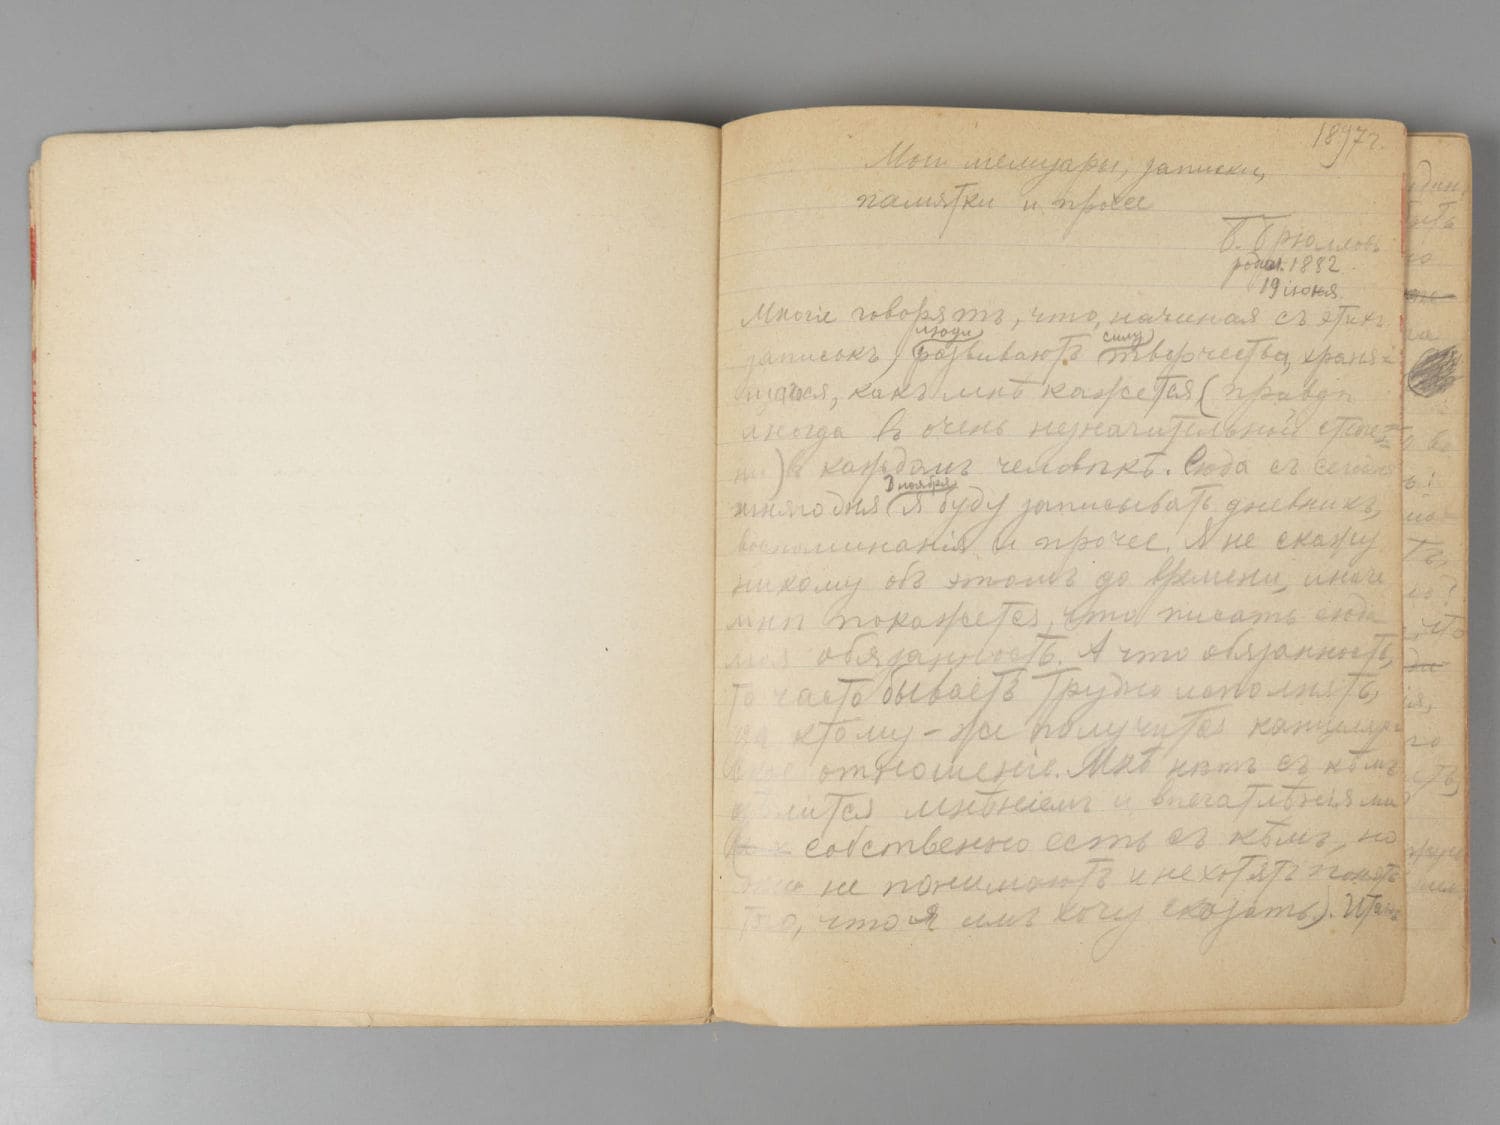 1897 г.
Мои мемуары, записки,
памятки и прочее
Б. Брюлловъ
родил. 1882
19 іюня
Многіе говорятъ, что, начиная съ этихъ
люди силу
записокъ, развиваютъ творчества, храня=
щагося, какъ мнѣ кажется, (правда
иногда въ очень незначительной степе=
ни) въ каждомъ человѣкѣ. Сюда съ сегод
3 ноября
няго дня я буду записывать дневникъ,
воспоминанія и прочее. Я не скажу
никому объ этомъ до времени, иначе
мнѣ покажется, что писать сюда
моя обязанность. А что обязанность,
то часто бываетъ трудно исполнять,
да ктому-же получится канцеляр
ское отношеніе. Мнѣ нѣтъ съ кѣмъ
дѣлится мнѣніемъ и впечатлѣніями
собственно есть съ кѣмъ, но
они не понимаютъ и не хотятъ понять
то, что я имъ хочу сказать). Итакъ